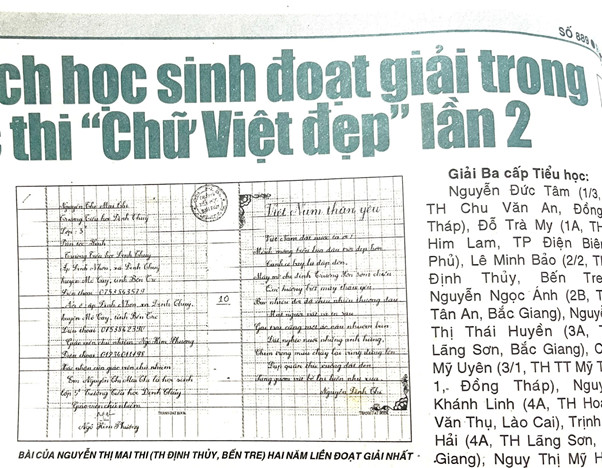 SỐ 889
ch học sinh đoạt giải trong
thi “Chữ Việt đẹp” lần 2
Nguyễn Thị Mai Thi
Trường Tiểu học Định Thủy
Lớp: 5
Dân tộc: Kinh
Trường Tiểu học Định Thủy
Ấp Định Nhơn, xã Định Thủy
huyện Mỏ Cày, tỉnh Bến Tre
ấp Định Nhơn, xã Định Thủy,
huyện Mỏ Cày, tỉnh Bến Tre
Giáo viên chủ nhiệm: Ngô Kim Phượng
Xác nhận của giáo viên chủ nhiệm
Em Nguyễn Thị Mai Thi là học sinh
lớp 5 Trường Tiểu học Định Thủy
Giáo viên chủ nhiệm
Ngô Kim Phượng
10
Việt Nam thân yêu
Việt Nam đất nước ta ơi!
Mênh mông biển lúa đâu trời đẹp hơn
Cánh cò bay lả dập dờn,
Mây mờ che đỉnh Trường Sơn sớm chiều
Quê hương biết mấy thân yêu
Bao nhiêu đời đã chịu nhiều thương đau
Mặt người vất vả in sâu
Gái trai cũng một áo nâu nhuộm bùn
Đất nghèo nuôi những anh hùng
Chìm trong máu chảy lại vùng đứng lên
Đạp quân thù xuống đất đen
Súng gươm vứt bỏ lại hiền như xưa
Nguyễn Đình Thi
BÀI CỦA NGUYỄN THỊ MAI THI (TH ĐỊNH THỦY, BẾN TRE) HAI NĂM LIỀN ĐOẠT GIẢI NHẤT
Giải Ba cấp Tiểu học:
Nguyễn Đức Tâm (1/3,
TH Chu Văn An, Đồng
Tháp), Đỗ Trà My (1A, TH
Him Lam, TP Điện Biên
Phủ), Lê Minh Bảo (2/2, TH
Định Thủy, Bến Tre
Nguyễn Ngọc Ánh (2B, T
Tân An, Bắc Giang), Nguyễ
Thị Thái Huyền (3A, T
Lãng Sơn, Bắc Giang), C
Mỹ Uyên (3/1, TH TT Mỹ T
1, Đồng Tháp), Nguy
Khánh Linh (4A, TH Hoà
Văn Thụ, Lào Cai), Trịnh
Hải (4A, TH Lãng Sơn,
Giang), Nguy Thị Mỹ H